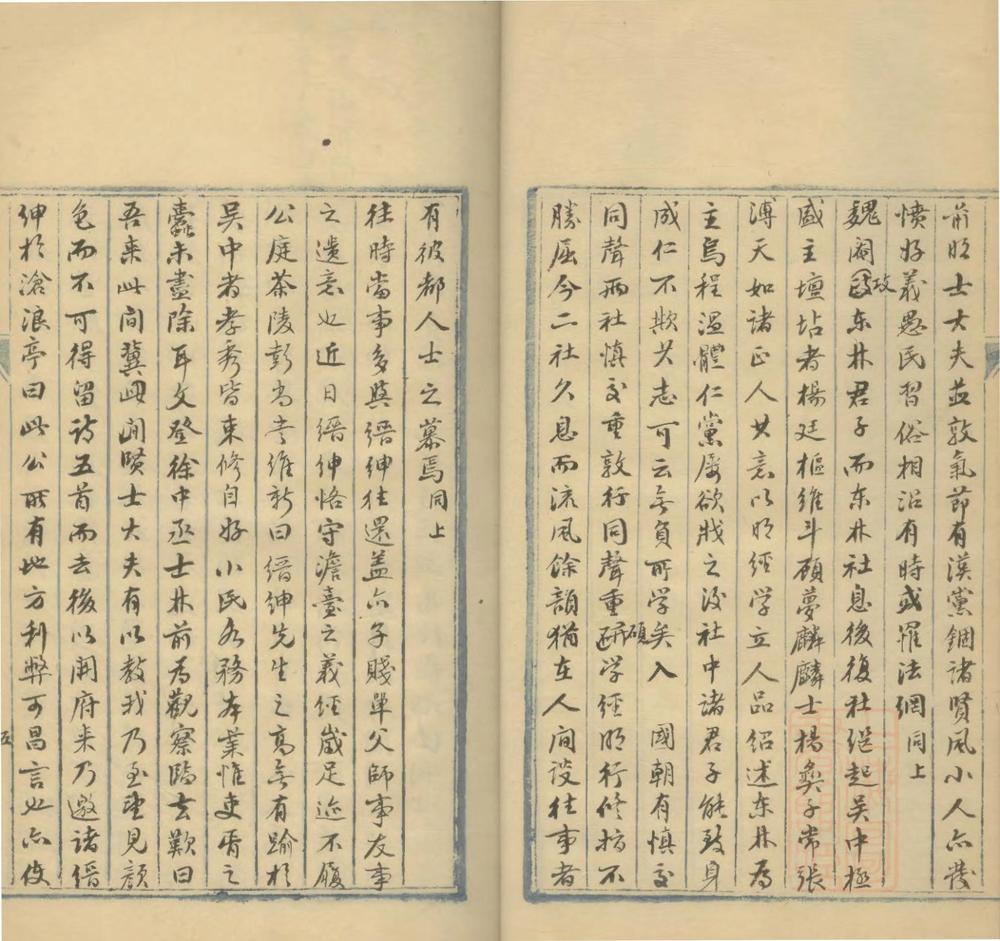 前明士大夫並敦氣節有漢黨錮諸賢風小人亦發
憤好義愚民習俗相沿有時或罹法網 同上
魏閹攻東林君子而東林社息後復社継起吳中極
盛主壇坫者楊廷樞維斗顧夢麟麟士楊彝子常張
溥天如諸正人其意以明經学立人品紹述東林為
主烏程溫體仁黨屢欲戕之沒社中諸君子能致身
成仁不欺其志可云無負所学矣入 國朝有慎交
同聲兩社慎交重敦行同聲重碩学經明行修枋不
勝屈今二社久息而流風餘韻猶在人间設往事者
有彼都人士之慕焉 同上
往時當事多與縉紳往還盖亦子賤單父師事友事
之遺意也近日縉紳恪守澹臺之義經嵗足迹不履
公庭茶陵彭尚書維新曰縉紳先生之高無有踰於
吳中者孝秀皆束修自好小民各務本業惟吏胥之
蠹未盡除耳文登徐中丞士林前為觀察臨去歎曰
吾来此间冀與此间賢士大夫有以教我乃至求見顔
色而不可得留诗五首而去後以開府来乃邀諸縉
紳於滄浪亭曰此公所有地方利弊可昌言也亦使
五